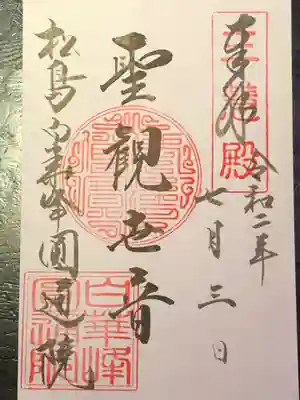 奉拝
三慧殿
令和二年
七月三日
聖觀世音
松島白華峰圓通院
白華峰
圓通院